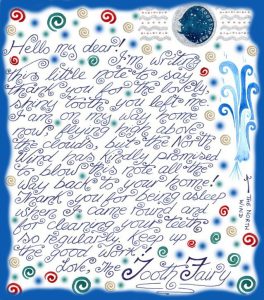 Hello my dear! I'm writing
this little note to say
thank you for the lovely,
shiny tooth you left me.
I am on my way home
now, flying high above
the clouds, but the North
Wind has kindly promised
to blow this note all the
way back to your home!
Thank you for being asleep
when I came round and
for cleaning your teeth
so regularly. Keep up
the good work!
Love, The Tooth Fairy
THE NORTH
WIND